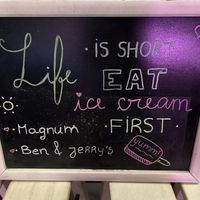 Life · IS SHORT
EAT
ice cream
· Magnum · FIRST ·
· Ben & JERRY'S
yummi